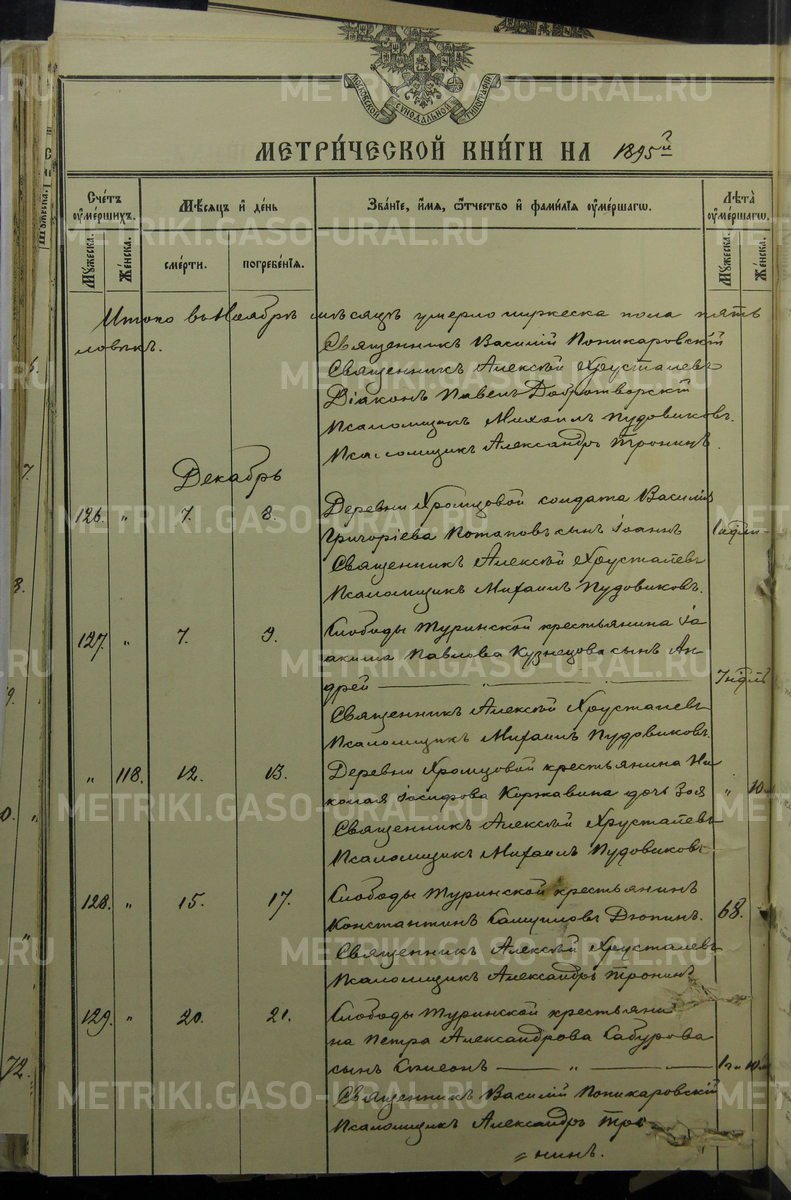 МОСКОВСКОЙ СѴНОДАЛЬНОЙ ТИПОГРАФІИ
МЕТРИ́ЧЕСКОЙ КНИ́ГИ НА 1895й
Счетъ ѹме́ршихъ. Мѣсяцъ и день Зва́нїе, и́мя, ѻ҆́тчество и фами́лїя ѹме́ршагѡ. Лѣта̀ ѹме́ршагѡ.
Мꙋ́жеска. Же́нска. сме́рти. погребе́нїя. Мꙋ́жеска. Же́нска.
Итого въ Ноябрѣ мѣсяцѣ умерло мужеска пола пять
ловѣкъ. Священникъ Василій Поникаровскій
Священникъ Алексѣй Хрусталевъ
Діаконъ Павелъ Добротворскій
Псаломщикъ Михаилъ Пудовиковъ.
Псаломщикъ Александръ Тронинъ.
Декабрь
126. " 7. 8. Деревни Хромцовой солдата Василія
Григоріева Потаповъ сынъ Іоаннъ
Священникъ Алексѣй Хрусталевъ
Псаломщикъ Михаилъ Пудовиковъ.
127. " 7. 9. Слободы Туринской крестьянина Іа
акима Павлова Кузнецова сынъ Ан
дрей " 7 нед
Священникъ Алексѣй Хрусталевъ
Псаломщикъ Михаилъ Пудовиковъ.
" 118. 12. 13. Деревни Хромцовой крестьянина Ни
колая Іосифова Коржавина дочь Зоя " 10
Священникъ Алексѣй Хрусталевъ
Псаломщикъ Михаилъ Пудовиковъ.
128. " 15. 17. Слободы Туринской крестьянинъ
Константинъ Самуиловъ Дюпинъ. 68.
Священникъ Алексѣй Хрусталевъ
Псаломщикъ Александръ Тронинъ
129. " 20. 21. Слободы Туринской крестьяни
на Петра Александрова Сабурова
сынъ Симеонъ " 1 г. 10 м
Священникъ Василій Поникаровскій
Псаломщикъ Александръ Тро
нинъ.
72.
METRIKI.GASO-URAL.RU